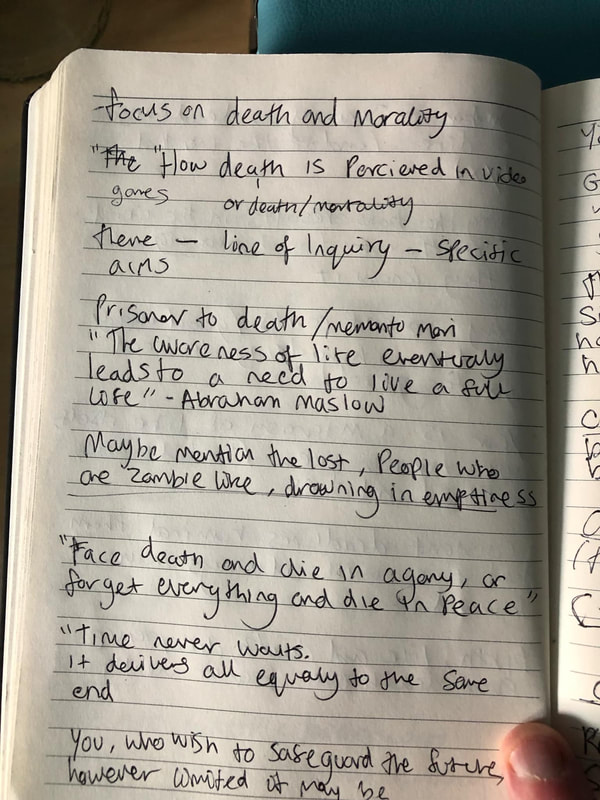 -focus on death and Morality
"The "How death is Percieved in video
games or death/mortality
theme – line of Inquiry – Specific
aims
Prisoner to death/memento mori
"The awareness of life eventualy
leads to a need to live a full
life" - Abraham Maslow
Maybe mention the lost, People who
are Zombie like, drowning in emptiness
"Face death and die in agony, or
forget everything and die in Peace"
"Time never waits.
It delivers all equaly to the same
end
You, who wish to safeguard the future,
however limited it may be